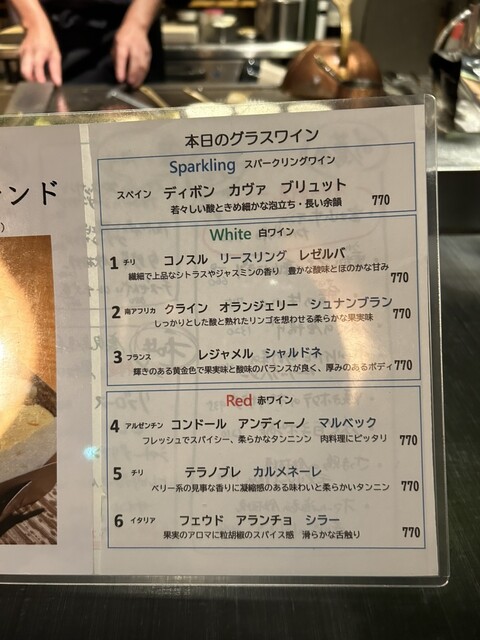 ンド
)
本日のグラスワイン
Sparkling スパークリングワイン
スペイン ディボン カヴァ ブリュット 770
若々しい酸ときめ細かな泡立ち・長い余韻
White 白ワイン
1 チリ コノスル リースリング レゼルバ
繊細で上品なシトラスやジャスミンの香り 豊かな酸味とほのかな甘み 770
2 南アフリカ クライン オランジェリー シュナンブラン
しっかりとした酸と熟れたリンゴを想わせる柔らかな果実味 770
3 フランス レジャメル シャルドネ
輝きのある黄金色で果実味と酸味のバランスが良く、厚みのあるボディ 770
Red 赤ワイン
4 アルゼンチン コンドール アンディーノ マルベック
フレッシュでスパイシー、柔らかなタンニンン 肉料理にピッタリ 770
5 チリ テラノブレ カルメネーレ
ベリー系の見事な香りに凝縮感のある味わいと柔らかいタンニン 770
6 イタリア フェウド アランチョ シラー
果実のアロマに粒胡椒のスパイス感 滑らかな舌触り 770